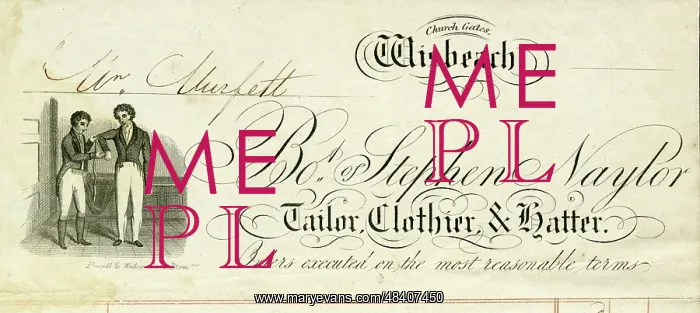 Church Gates.
Wisbeach
Mr. Murfett
Bot. of Stephen Naylor
Tailor, Clothier, & Hatter.
Orders executed on the most reasonable terms
ME
PL
ME
PL
www.maryevans.com/48407450